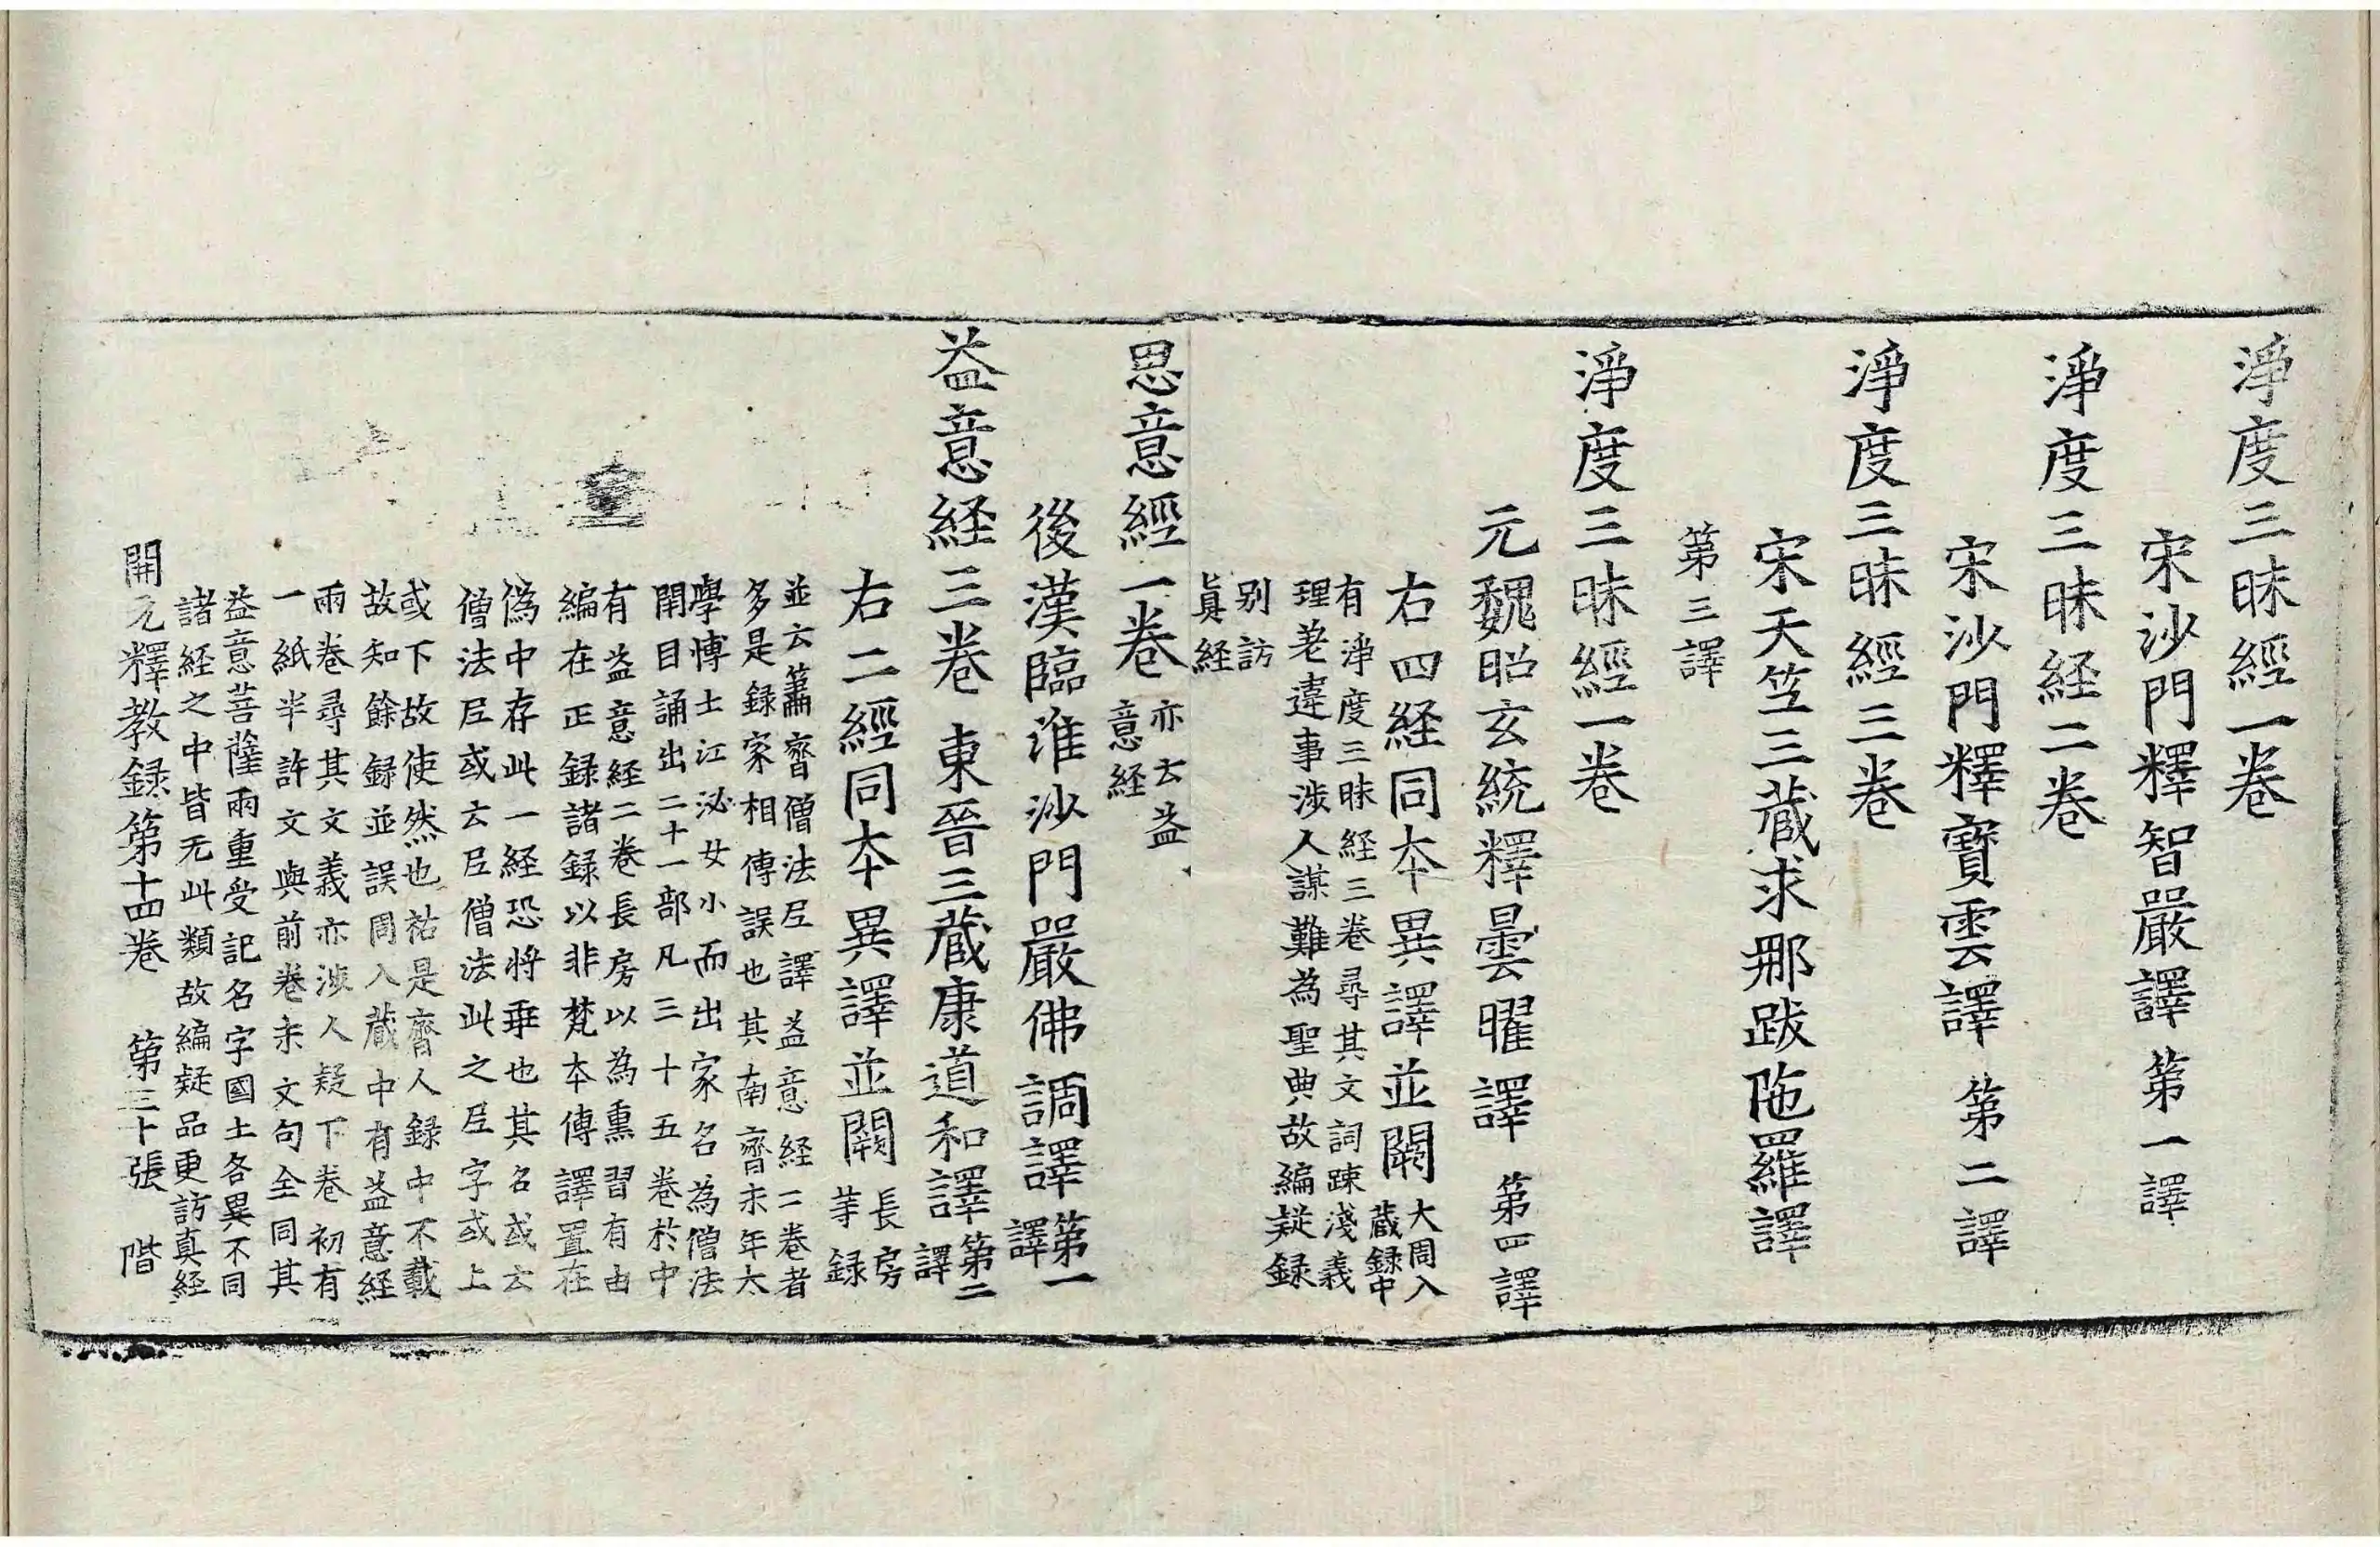 淨度三昧經一卷
宋沙門釋智嚴譯 第一譯
淨度三昧経二卷
宋沙門釋寶雲譯 第二譯
淨度三昧經三卷
宋天竺三蔵求那跋陁羅譯
第三譯
淨度三昧經一卷
元魏昭玄統釋曇曜譯 第四譯
右四経同本異譯並闕 大周入
蔵録中
有淨度三昧経三卷尋其文詞踈淺義
理差違事涉人謀難為聖典故編疑録
别訪
眞経
思意經一卷 亦云益
意経
後漢臨淮沙門嚴佛調譯 第一
譯
益意経三卷 東晉三蔵康道和譯 第二
譯
右二經同本異譯並闕 長房
等録
並云蕭齊僧法尼譯益意経二卷者
多是録家相傳誤也其南齊末年太
學博士江泌女小而出家名為僧法
閉目誦出二十一部凡三十五卷於中
有益意経二卷長房以為熏習有由
編在正録諸録以非梵本傳譯置在
偽中存此一経恐將乖也其名或云
僧法尼或云尼僧法此之尼字或上
或下故使然也祐是齊人録中不載
故知餘録並誤周入蔵中有益意経
兩卷尋其文義亦涉人疑下卷初有
一紙半許文與前卷末文句全同其
益意菩薩兩重受記名字國土各異不同
諸経之中皆无此類故編疑品更訪真経
開元釋教録第十四卷 第三十張 階